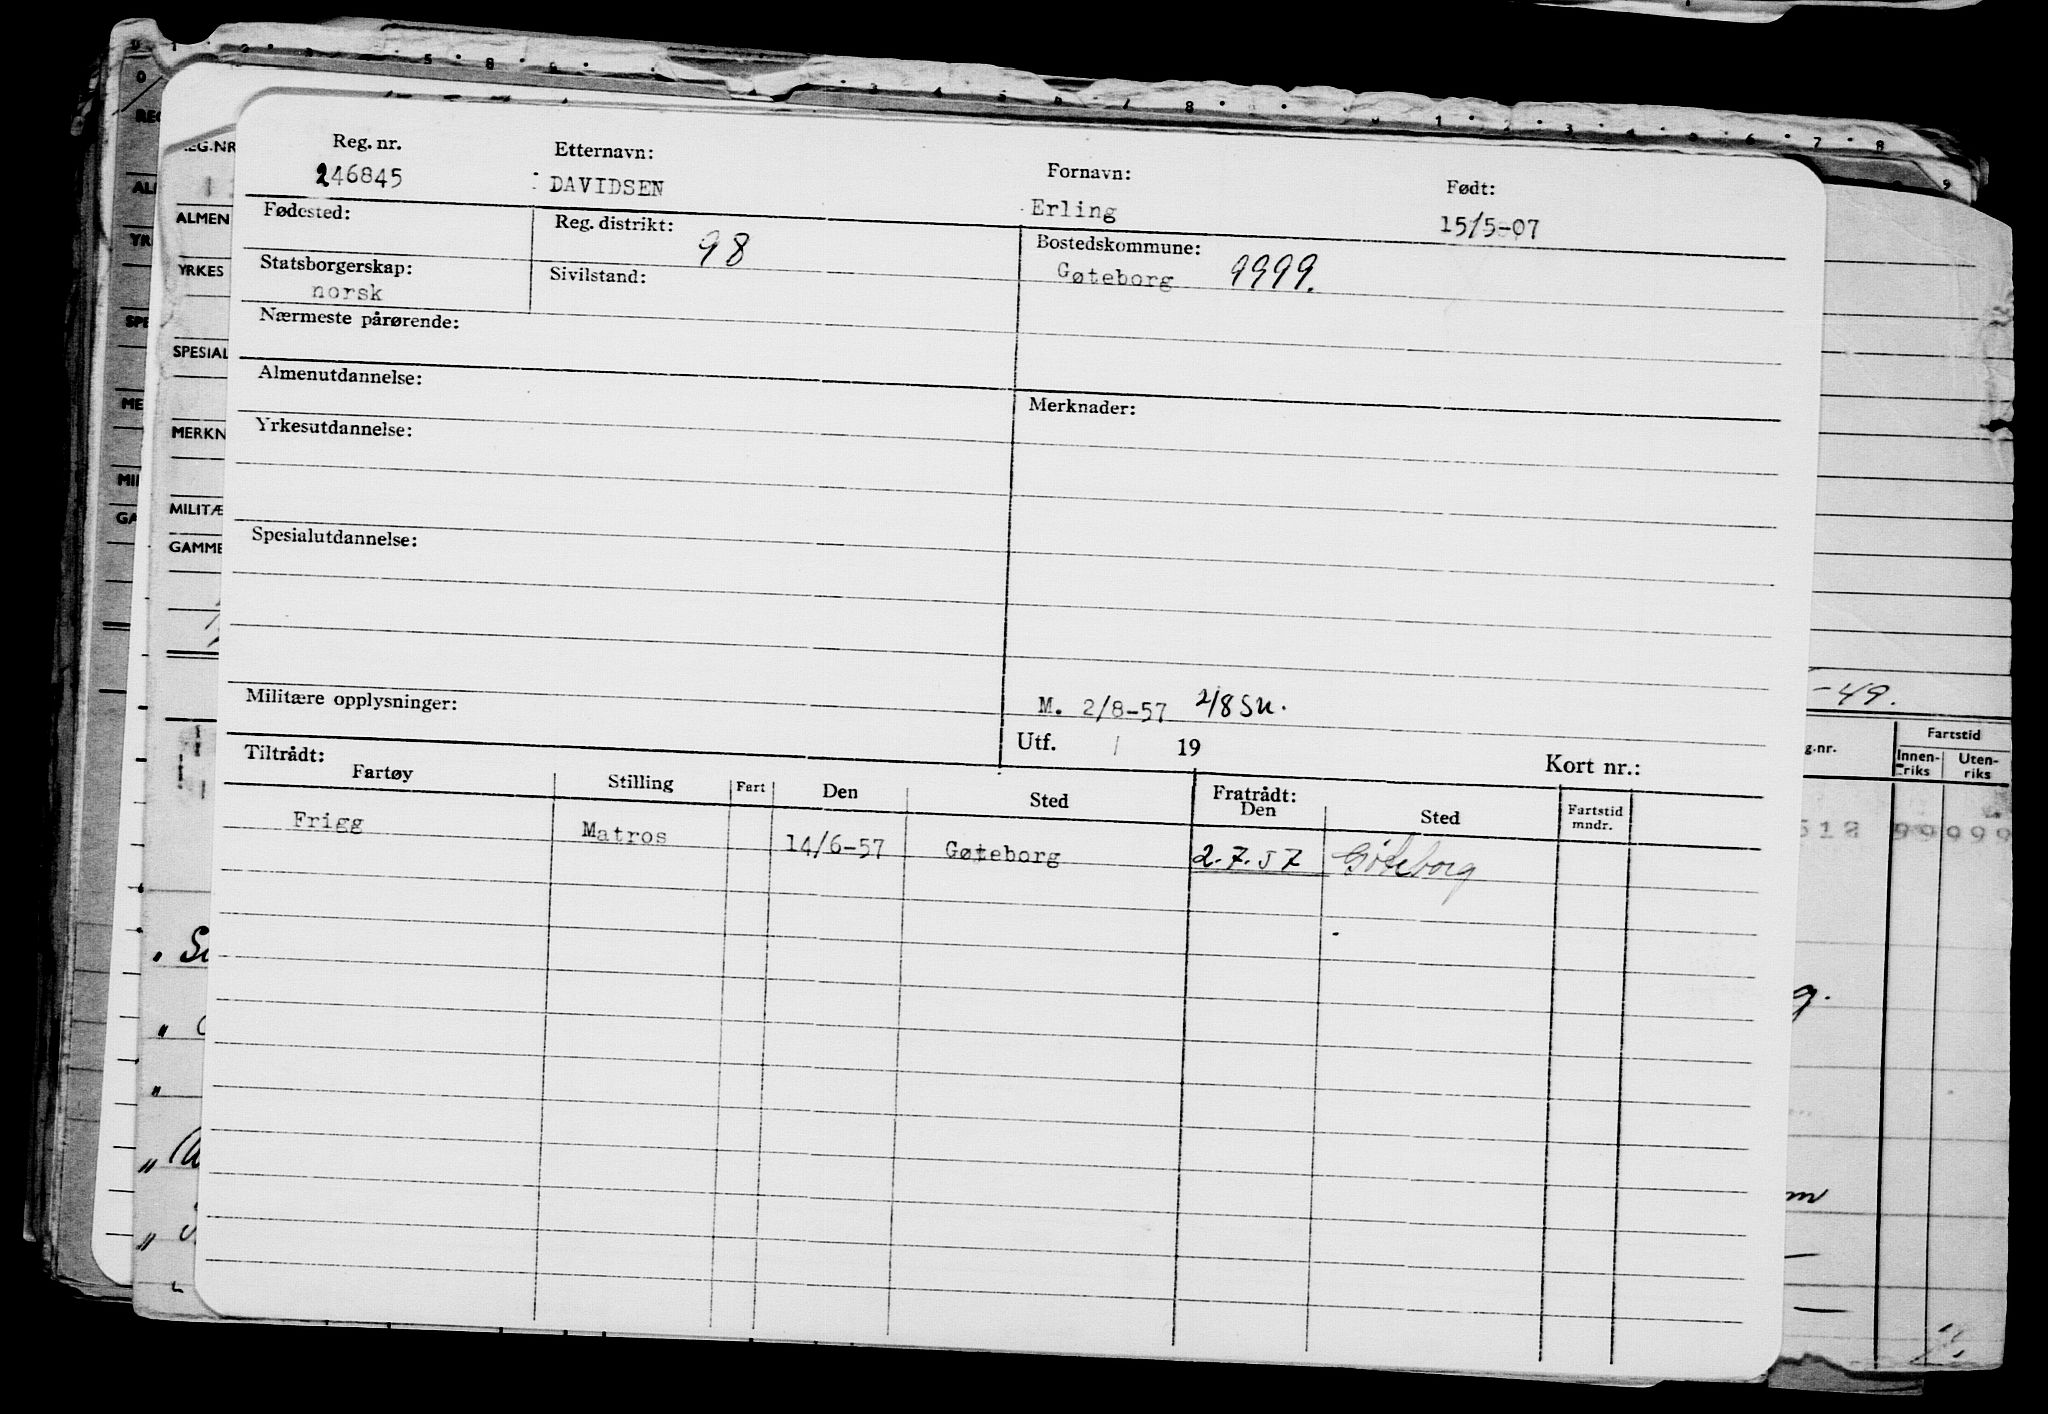 Reg. nr. Etternavn: Fornavn: Født:
246845 DAVIDSEN Erling 15/5-07
Fødested: Reg. distrikt: 98 Bostedskommune:
Gøteborg 9999.
Statsborgerskap: Sivilstand:
norsk
Nærmeste pårørende:
Almenutdannelse:
Merknader:
Yrkesutdannelse:
Spesialutdannelse:
Militære opplysninger:
M. 2/8-57 2/8 Su.
Utf. / 19 Kort nr.:
Tiltrådt: Fratrådt:
Fartøy Stilling Fart Den Sted Den Sted Fartstid
mndr.
Frigg Matros 14/6-57 Gøteborg 2.7.57 Göteborg
REG.NR
ALMEN
YRKES
SPESIAL
MERKN
MILITÆ
GAMME
-49.
g.nr. Fartstid
Innen-
riks Uten-
riks